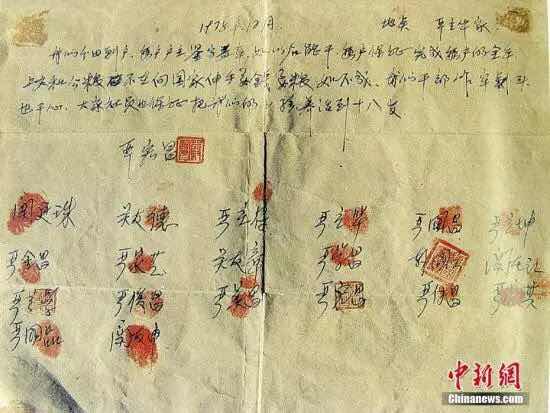 1978年12月. 地点 严立华家
我们分田到户,每户户主签字盖章,如以后能干,每户保证完成每户的全年
上交和公粮 不在向国家伸手要钱要粮,如不成,我们干部作牢刹头
也干心,大家社员也保证把我们的小孩养活到十八岁
严宏昌
关廷珠 关友德 严立符 严立华 严国昌 严立坤
严金昌 严家芝 关友章 严学昌
严立学 严俊昌 严美昌 严付昌
严国品 关友申
中新网
Chinanews.com